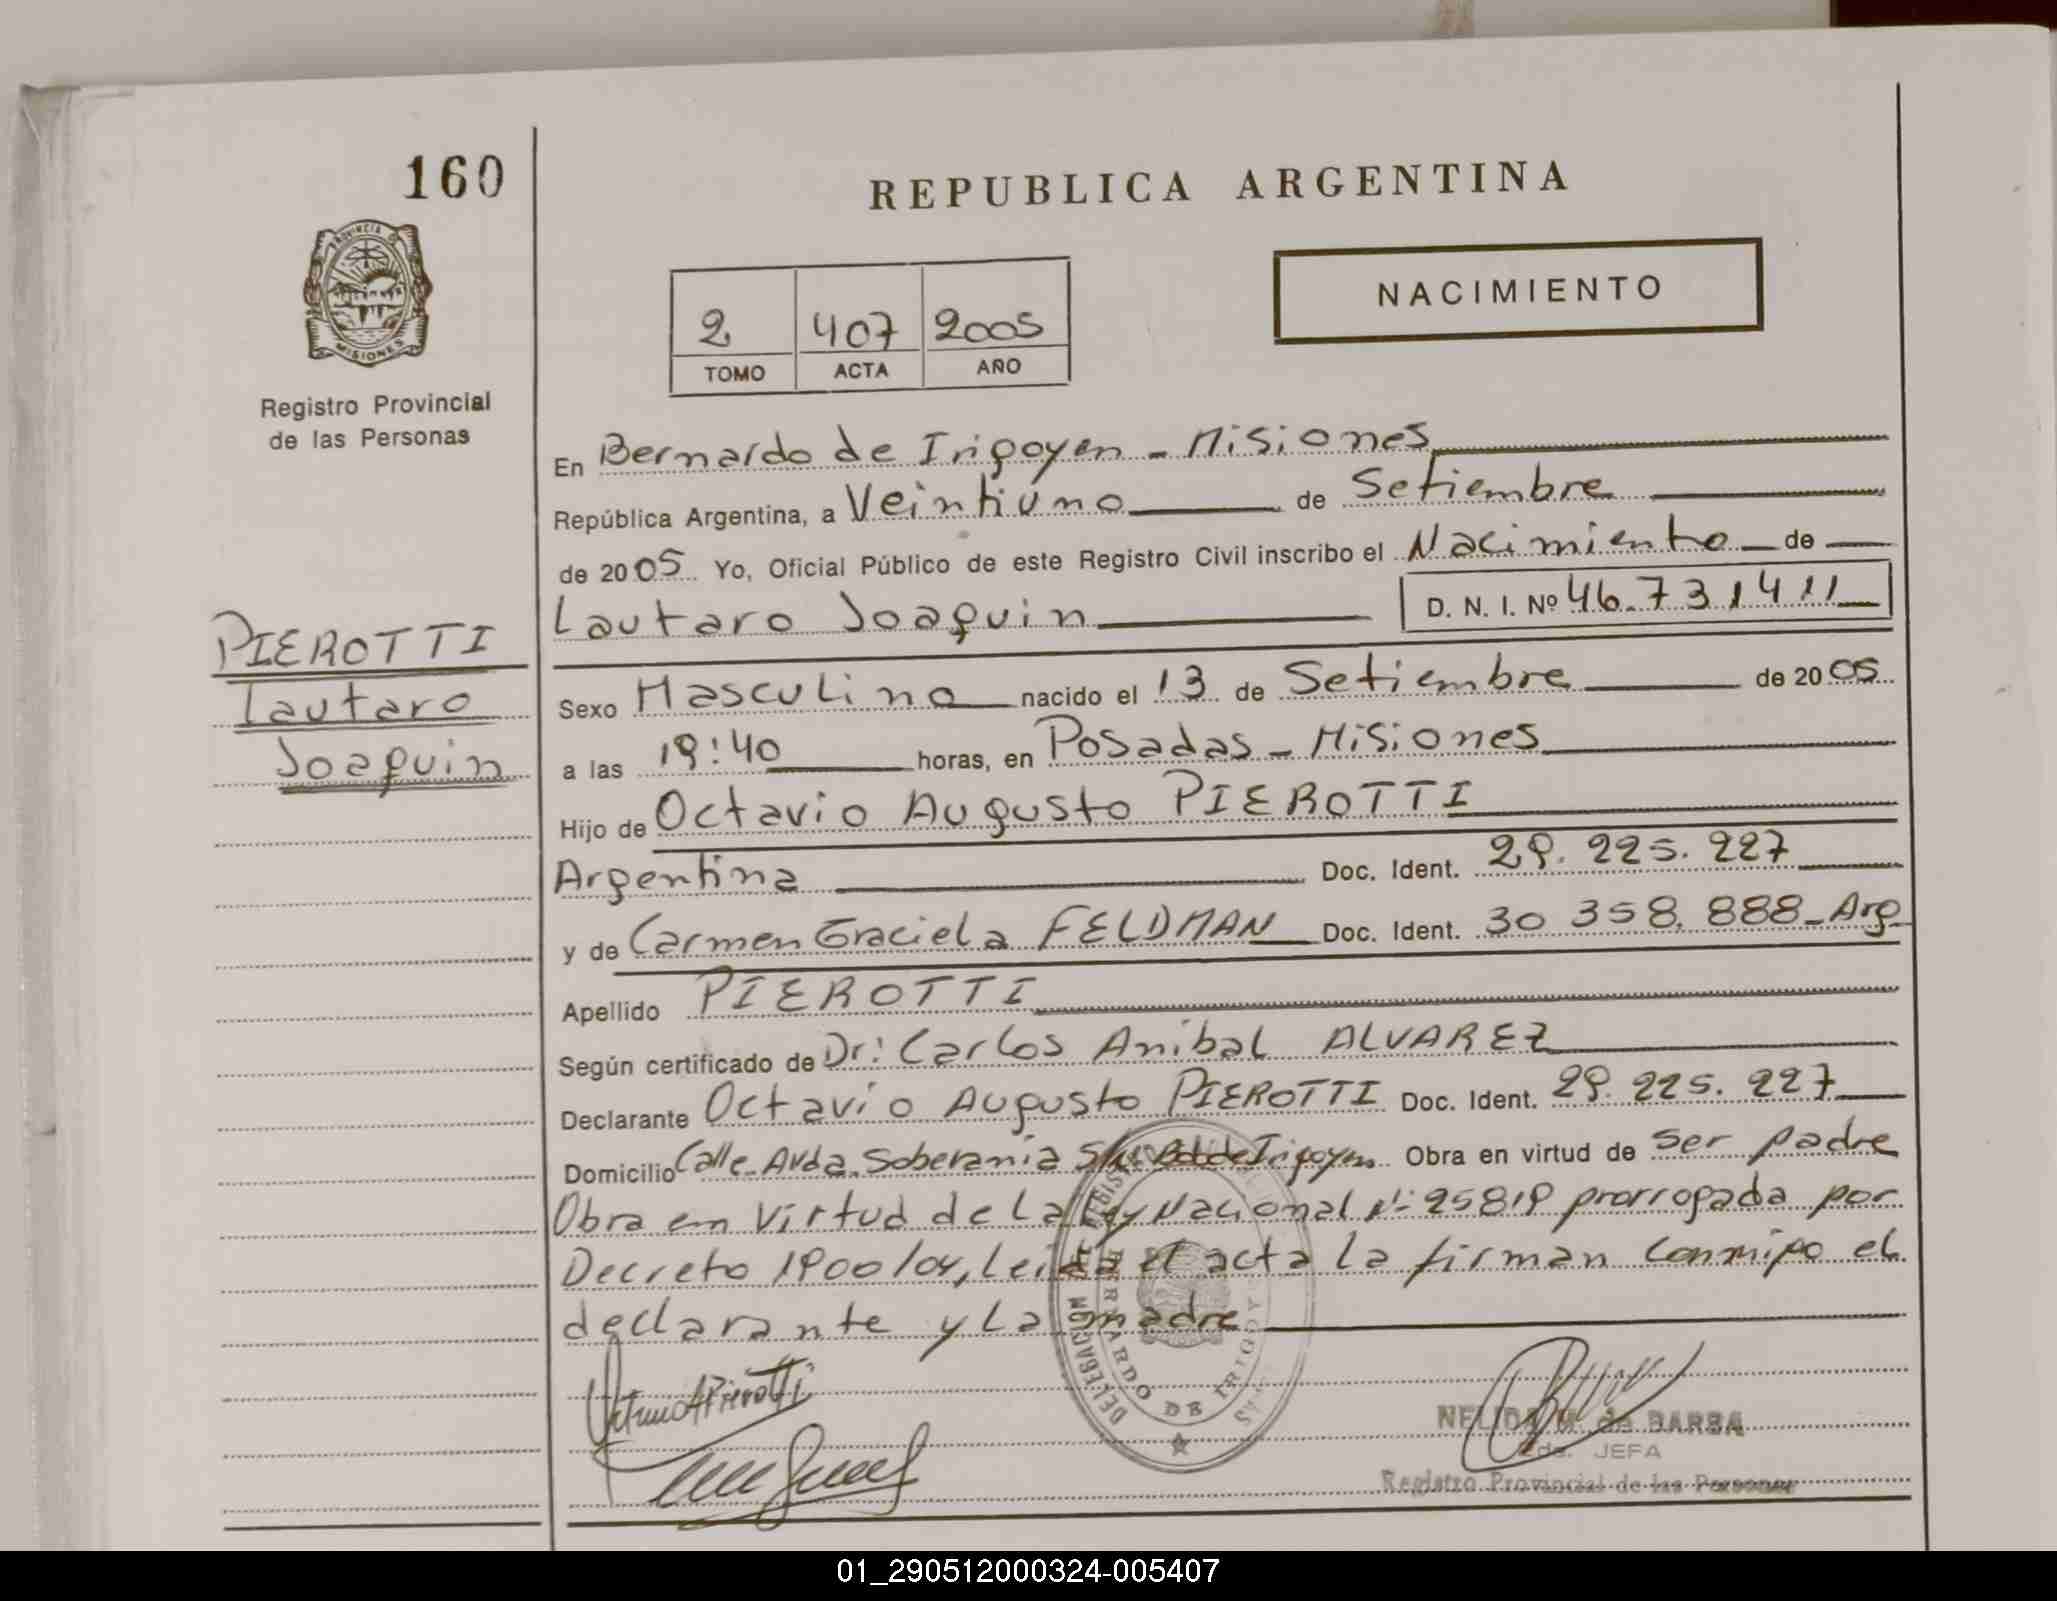 160
PROVINCIA DE
MISIONES
Registro Provincial
de las Personas
PIEROTTI
Lautaro
Joaquin
REPUBLICA ARGENTINA
NACIMIENTO
2 407 2005
TOMO ACTA AÑO
En Bernardo de Irigoyen - Misiones
República Argentina, a Veintiuno de Setiembre
de 2005 Yo, Oficial Público de este Registro Civil inscribo el Nacimiento de
Lautaro Joaquin D. N. I. Nº 46.731411
Sexo Masculino nacido el 13 de Setiembre de 2005
a las 19:40 horas, en Posadas - Misiones
Hijo de Octavio Augusto PIEROTTI
Argentina Doc. Ident. 29.225.227
y de Carmen Graciela FELDMAN Doc. Ident. 30 358.888 - Arg
Apellido PIEROTTI
Según certificado de Dr: Carlos Anibal ALVAREZ
Declarante Octavio Augusto PIEROTTI Doc. Ident. 29.225.227
Domicilio Calle Avda. Soberania S/N Bdo de Irigoyen Obra en virtud de ser padre
Obra en Virtud de La Ley Nacional Nº 25819 prorrogada por
Decreto 1900/04, leida el acta la firman conmigo el
declarante y La madre
DELEGACION
BERNARDO DE IRIGOYEN
NELIDA M. de BARBA
JEFA
Registro Provincial de las Personas
01_290512000324-005407